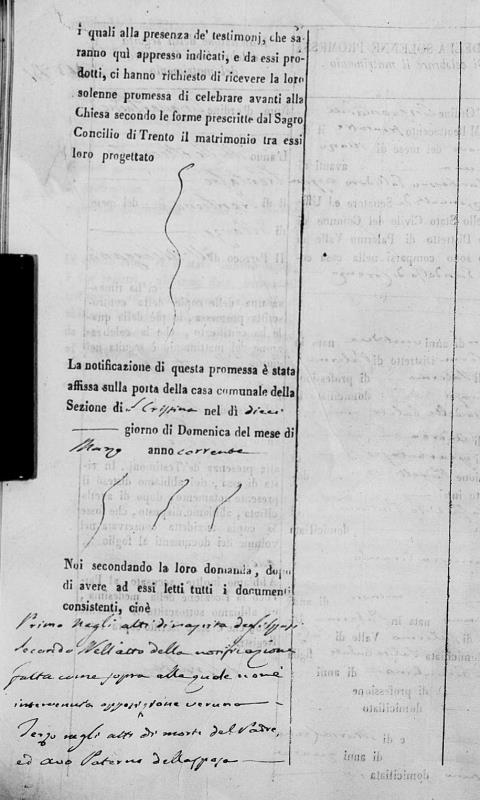 i quali alla presenza de' testimonj, che sa-
ranno quì appresso indicati, e da essi pro-
dotti, ci hanno richiesto di ricevere la loro
solenne promessa di celebrare avanti alla
Chiesa secondo le forme prescritte dal Sagro
Concilio di Trento il matrimonio tra essi
loro progettato
La notificazione di questa promessa è stata
affissa sulla porta della casa comunale della
Sezione di S. Crispina nel dì dieci
giorno di Domenica del mese di
Marzo anno corrente
Noi secondando la loro domanda, dopo
di avere ad essi letti tutti i documenti
consistenti, cioè
Primo negli atti di nascita degli sposi
Secondo Nell'atto della notificazione
fatta come sopra alla quale non è
intervenuta opposizione veruna
Terzo negli atti di morte del Padre,
ed avo Paterno della sposa